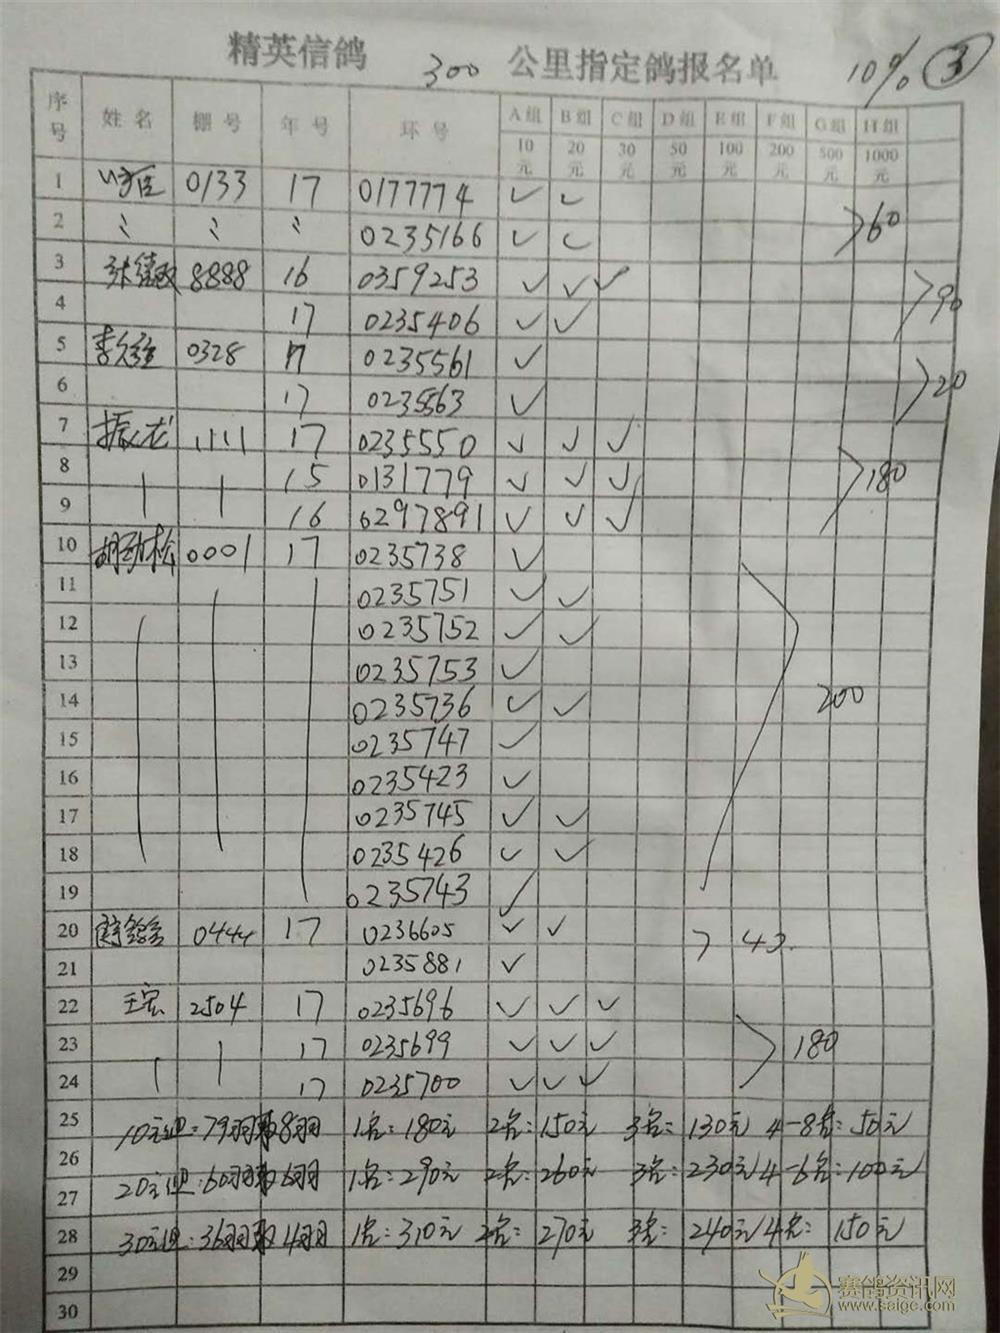 精英信鸽 300 公里指定鸽报名单 10% ③
序号 姓名 棚号 年号 环号 A组 B组 C组 D组 E组 F组 G组 H组
10元 20元 30元 50元 100元 200元 500元 1000元
1 0133 17 0177774 ✓ ✓
2 〃 〃 〃 0235166 ✓ ✓ 60
3 8888 16 0359253 ✓ ✓ ✓
4 17 0235406 ✓ ✓ 90
5 0328 17 0235561 ✓
6 17 0235563 ✓ 20
7 振龙 1111 17 0235550 ✓ ✓ ✓
8 15 0131779 ✓ ✓ ✓ 180
9 16 6297891 ✓ ✓ ✓
10 胡劲松 0001 17 0235738 ✓
11 0235751 ✓ ✓
12 0235752 ✓ ✓
13 0235753 ✓
14 0235736 ✓ ✓ 200
15 0235747 ✓
16 0235423 ✓
17 0235745 ✓ ✓
18 0235426 ✓ ✓
19 0235743 ✓
20 0444 17 0236605 ✓ ✓ 40
21 0235881 ✓
22 王宏 2504 17 0235696 ✓ ✓ ✓
23 17 0235699 ✓ ✓ ✓ 180
24 17 0235700 ✓ ✓ ✓
25 10元组:79羽取8羽 1名:180元 2名:150元 3名:130元 4-8名:50元
26
27 20元组:60羽取6羽 1名:290元 2名:260元 3名:230元 4-6名:100元
28 30元组:36羽取4羽 1名:310元 2名:270元 3名:240元 4名:150元
29
30
赛鸽资讯网
www.saige.com